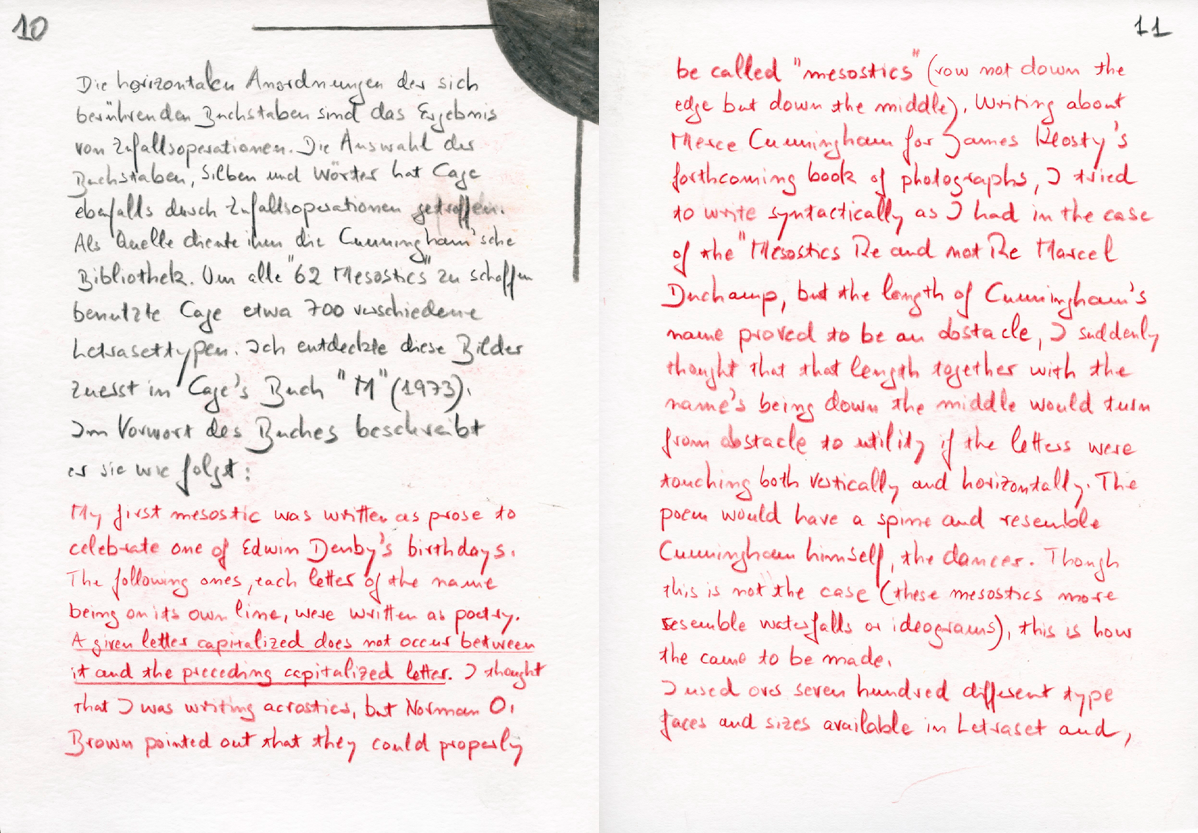 10
Die horizontalen Anordnungen der sich
berührenden Buchstaben sind das Ergebnis
von Zufallsoperationen. Die Auswahl der
Buchstaben, Silben und Wörter hat Cage
ebenfalls durch Zufallsoperationen getroffen.
Als Quelle diente ihm die Cunningham'sche
Bibliothek. Um alle "62 Mesostics" zu schaffen
benutzte Cage etwa 700 verschiedene
Letrasettypen. Ich entdeckte diese Bilder
zuerst in Cage's Buch "M" (1973).
Im Vorwort des Buches beschreibt
er sie wie folgt:
My first mesostic was written as prose to
celebrate one of Edwin Denby's birthdays.
The following ones, each letter of the name
being on its own line, were written as poetry.
A given letter capitalized does not occur between
it and the preceding capitalized letter. I thought
that I was writing acrostics, but Norman O.
Brown pointed out that they could properly
11
be called "mesostics" (row not down the
edge but down the middle). Writing about
Merce Cunningham for James Klosty's
forthcoming book of photographs, I tried
to write syntactically as I had in the case
of the "Mesostics Re and not Re Marcel
Duchamp, but the length of Cunningham's
name proved to be an obstacle, I suddenly
thought that that length together with the
name's being down the middle would turn
from obstacle to utility if the letters were
touching both vertically and horizontally. The
poem would have a spine and resemble
Cunningham himself, the dancer. Though
this is not the case (these mesostics more
resemble waterfalls or ideograms), this is how
the came to be made.
I used over seven hundred different type
faces and sizes available in Letraset and,